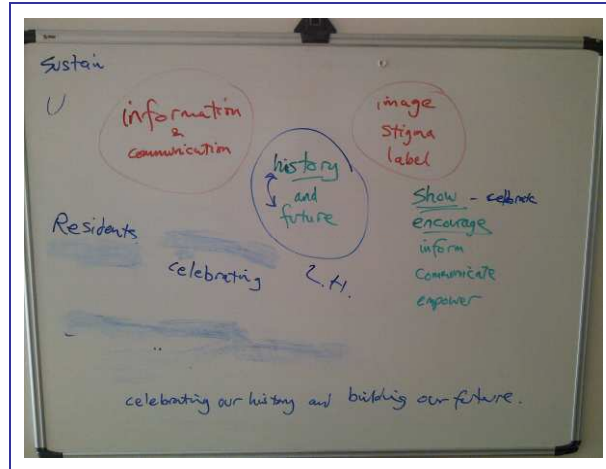 Sustain
U
information
&
communication
image
stigma
label
history
and
future
Show - celebrate
encourage
inform
communicate
empower
Residents
celebrating
celebrating our history and building our future.